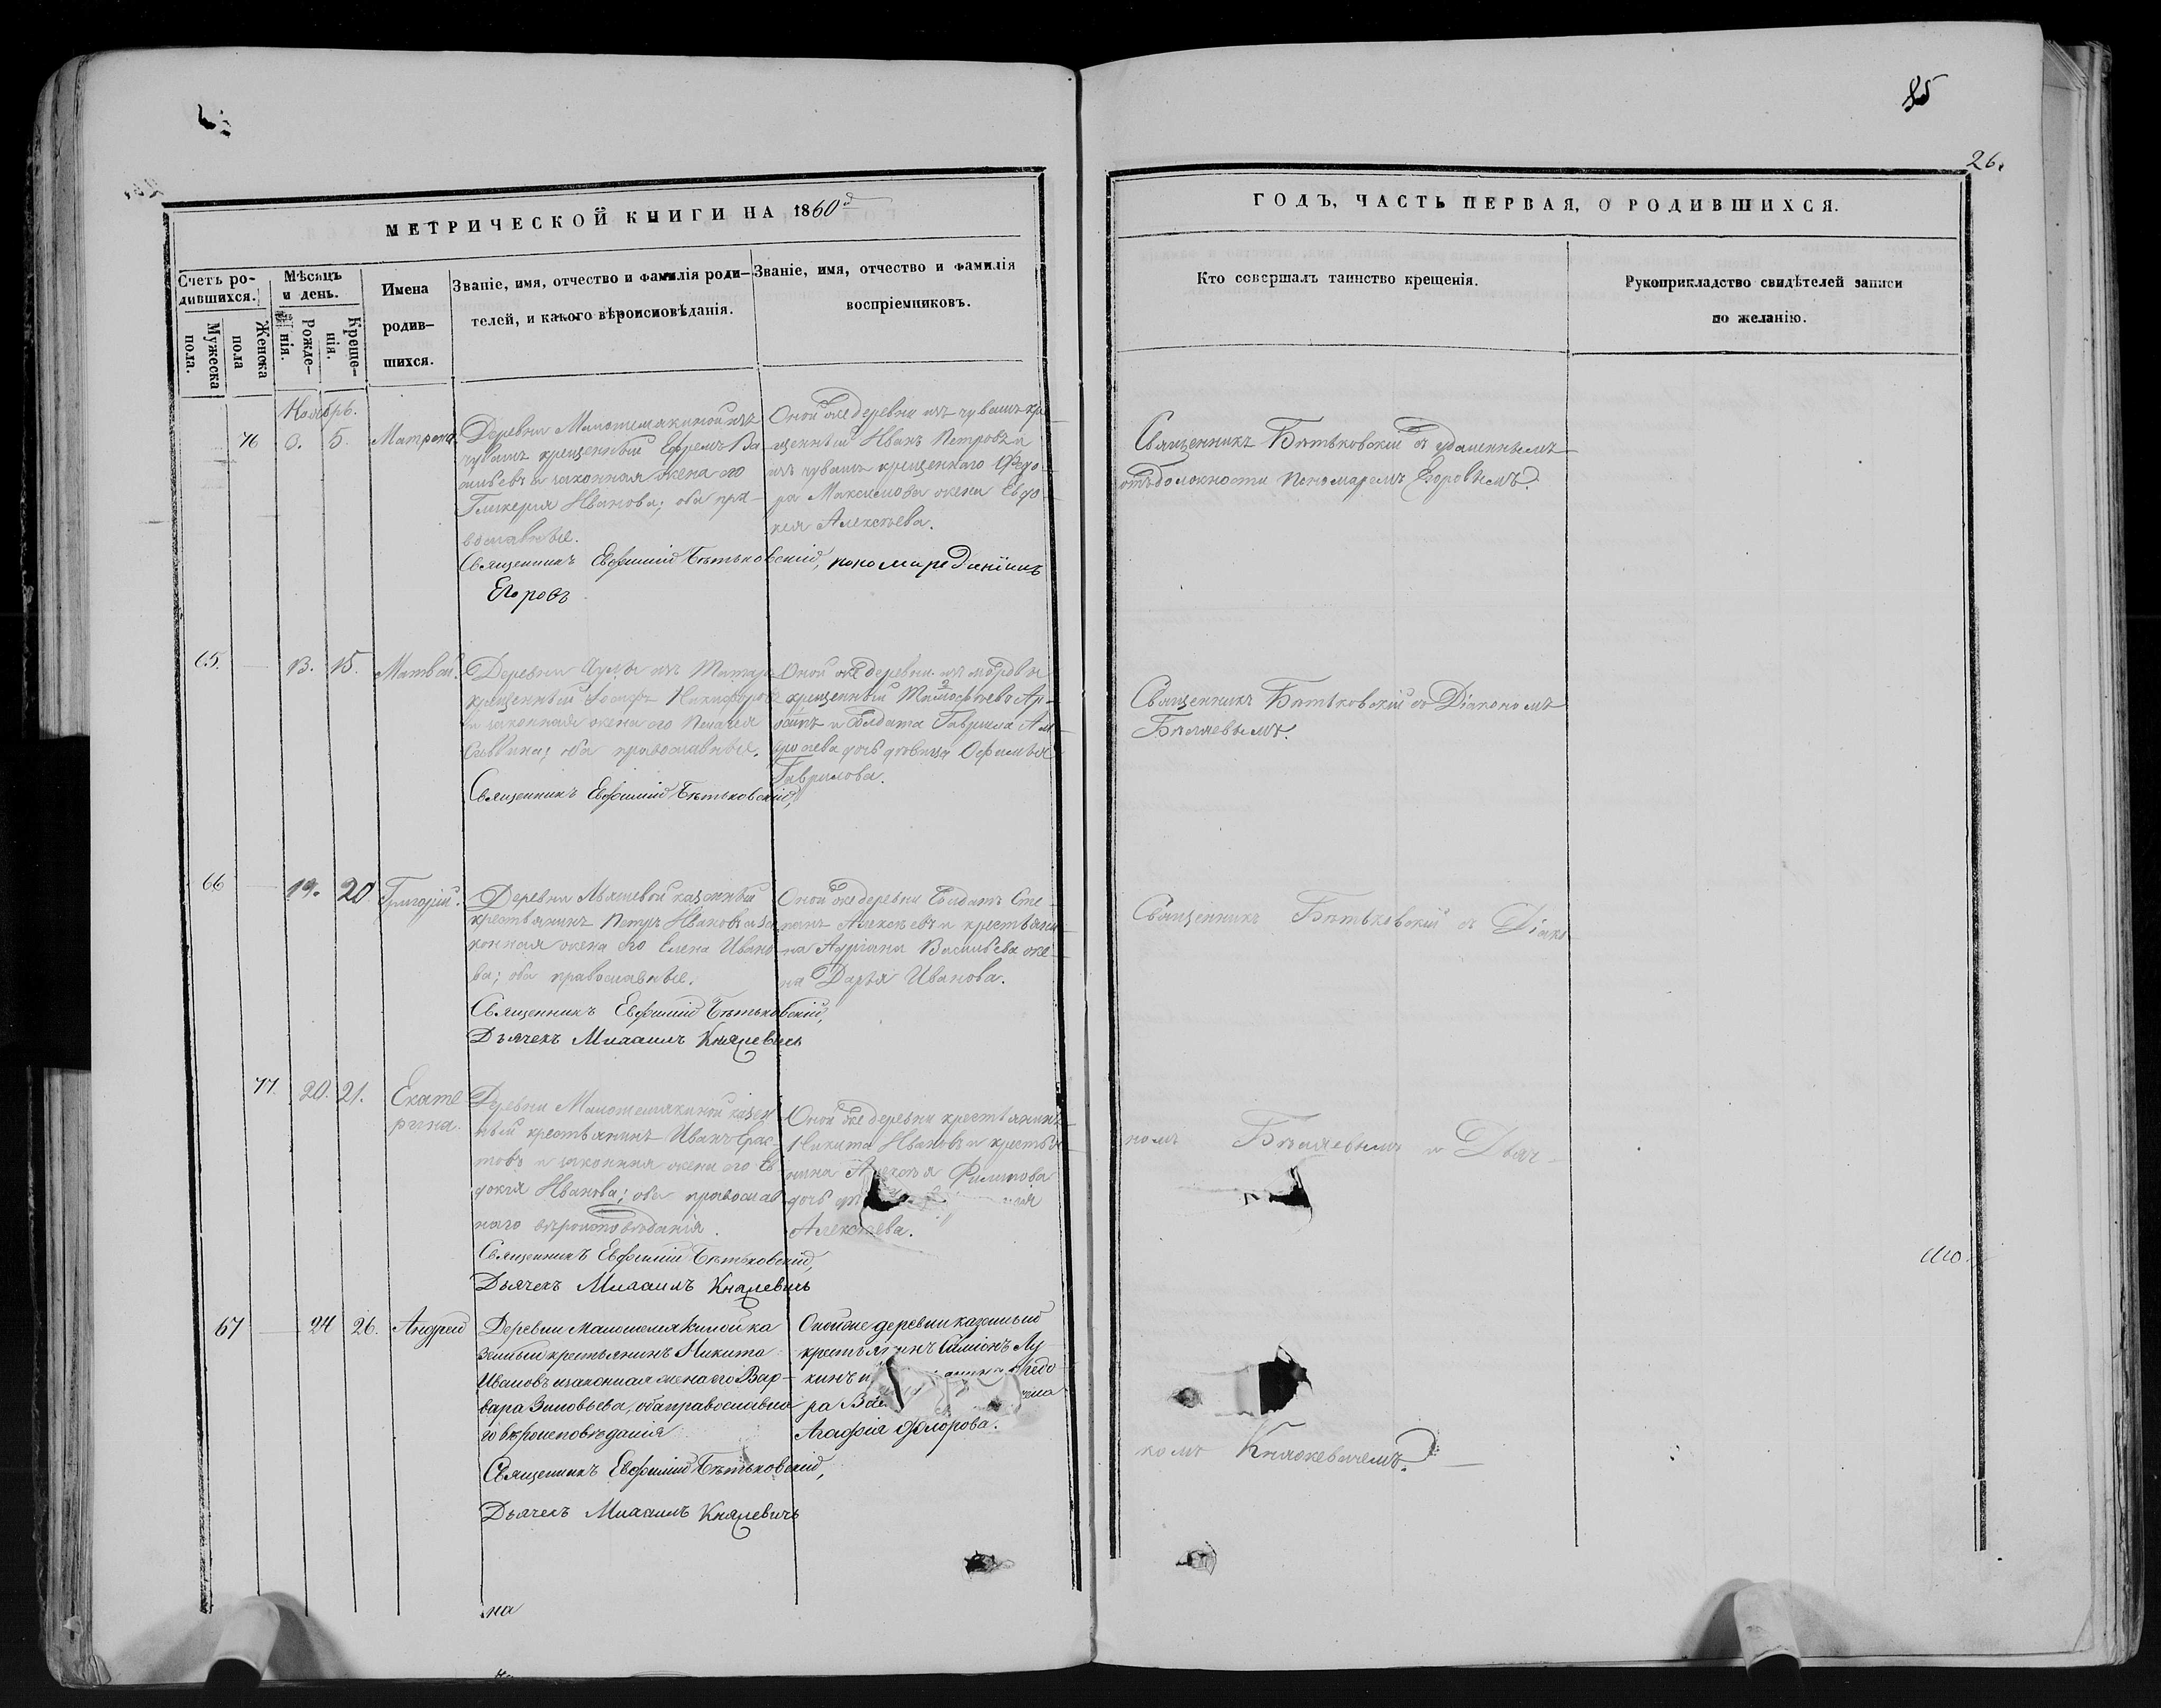 85
26.
МЕТРИЧЕСКОЙ КНИГИ НА 1860й
ГОДЪ, ЧАСТЬ ПЕРВАЯ, О РОДИВШИХСЯ.
Счетъ ро-
дившихся.
Мужеска
пола.
Женска
пола
Мѣсяцъ
и день.
Рожде-
нія.
Креще-
нія.
Имена
родив-
шихся.
Званіе, имя, отчество и фамилія роди-
телей, и какого вѣроисповѣданія.
Званіе, имя, отчество и фамилія
воспріемниковъ.
Кто совершалъ таинство крещенія.
Рукоприкладство свидѣтелей записи
по желанію.
Ноябрь.
76
5.
Матрона
Деревни Малошемякиной изъ
чувашъ крещенный Ефремъ Ва-
сильевъ и законная жена его
Гликерія Иванова; оба пра-
вославные.
Священникъ Евфимій Бѣтьковскій, пономарь
Егоровъ
Оной же деревни изъ чувашъ кре-
щенный Иванъ Петровъ и
изъ чувашъ крещеннаго Ѳедо-
ра Максимова жена Евдо-
кія Алексѣева.
Священникъ Бѣтьковскій съ удаленнымъ
отъ должности Пономаремъ Егоровымъ.
65.
13. 15.
Матвей.
Деревни изъ Татаръ
крещенный Никифоровъ
и законная жена его Пелагея
оба православные.
Священникъ Евфимій Бѣтьковскій,
Оной же деревни изъ мордвы
крещенный
и Солдата Гаврила
дочь девица Офимья
Гаврилова.
Священникъ Бѣтьковскій съ Діакономъ
Бѣляевымъ.
66
19. 20
Григорій.
Деревни казенный
крестьянинъ Петръ Ивановъ и за-
конная жена его Елена Ивано-
ва; оба православные.
Священникъ Евфимій Бѣтьковскій,
Дьячекъ Михаилъ Княжевичь
Оной же деревни Солдатъ Сте-
панъ Алексѣевъ и крестьяни-
на Адріана Васильева же-
на Дарья Иванова.
Священникъ Бѣтьковскій съ Діако
77.
20. 21.
Екате
рина.
Деревни Малошемякиной казен
ный крестьянинъ Иванъ
и законная жена его Ев
докія Иванова; оба православ
наго вѣроисповѣданія.
Священникъ Евфимій Бѣтьковскій,
Дьячекъ Михаилъ Княжевичь
Оной же деревни крестьянинъ
Никита Ивановъ и крестья
нина Алексѣя Филипова
дочь
Алексѣева.
номъ Бѣляевымъ и Дьяч-
67
24 26.
Андрей
Деревни Малошемякиной ка
зенный крестьянинъ Никита
Ивановъ и законная жена его Вар-
вара Зиновьева, оба православна
го вѣроисповѣданія
Священникъ Евфимій Бѣтьковскій,
Дьячекъ Михаилъ Княжевичь
Оной же деревни казенный
крестьянинъ Симіонъ Лу
кинъ и Ѳедо
ра
Агафія Ѳедорова.
комъ Княжевичемъ.
на